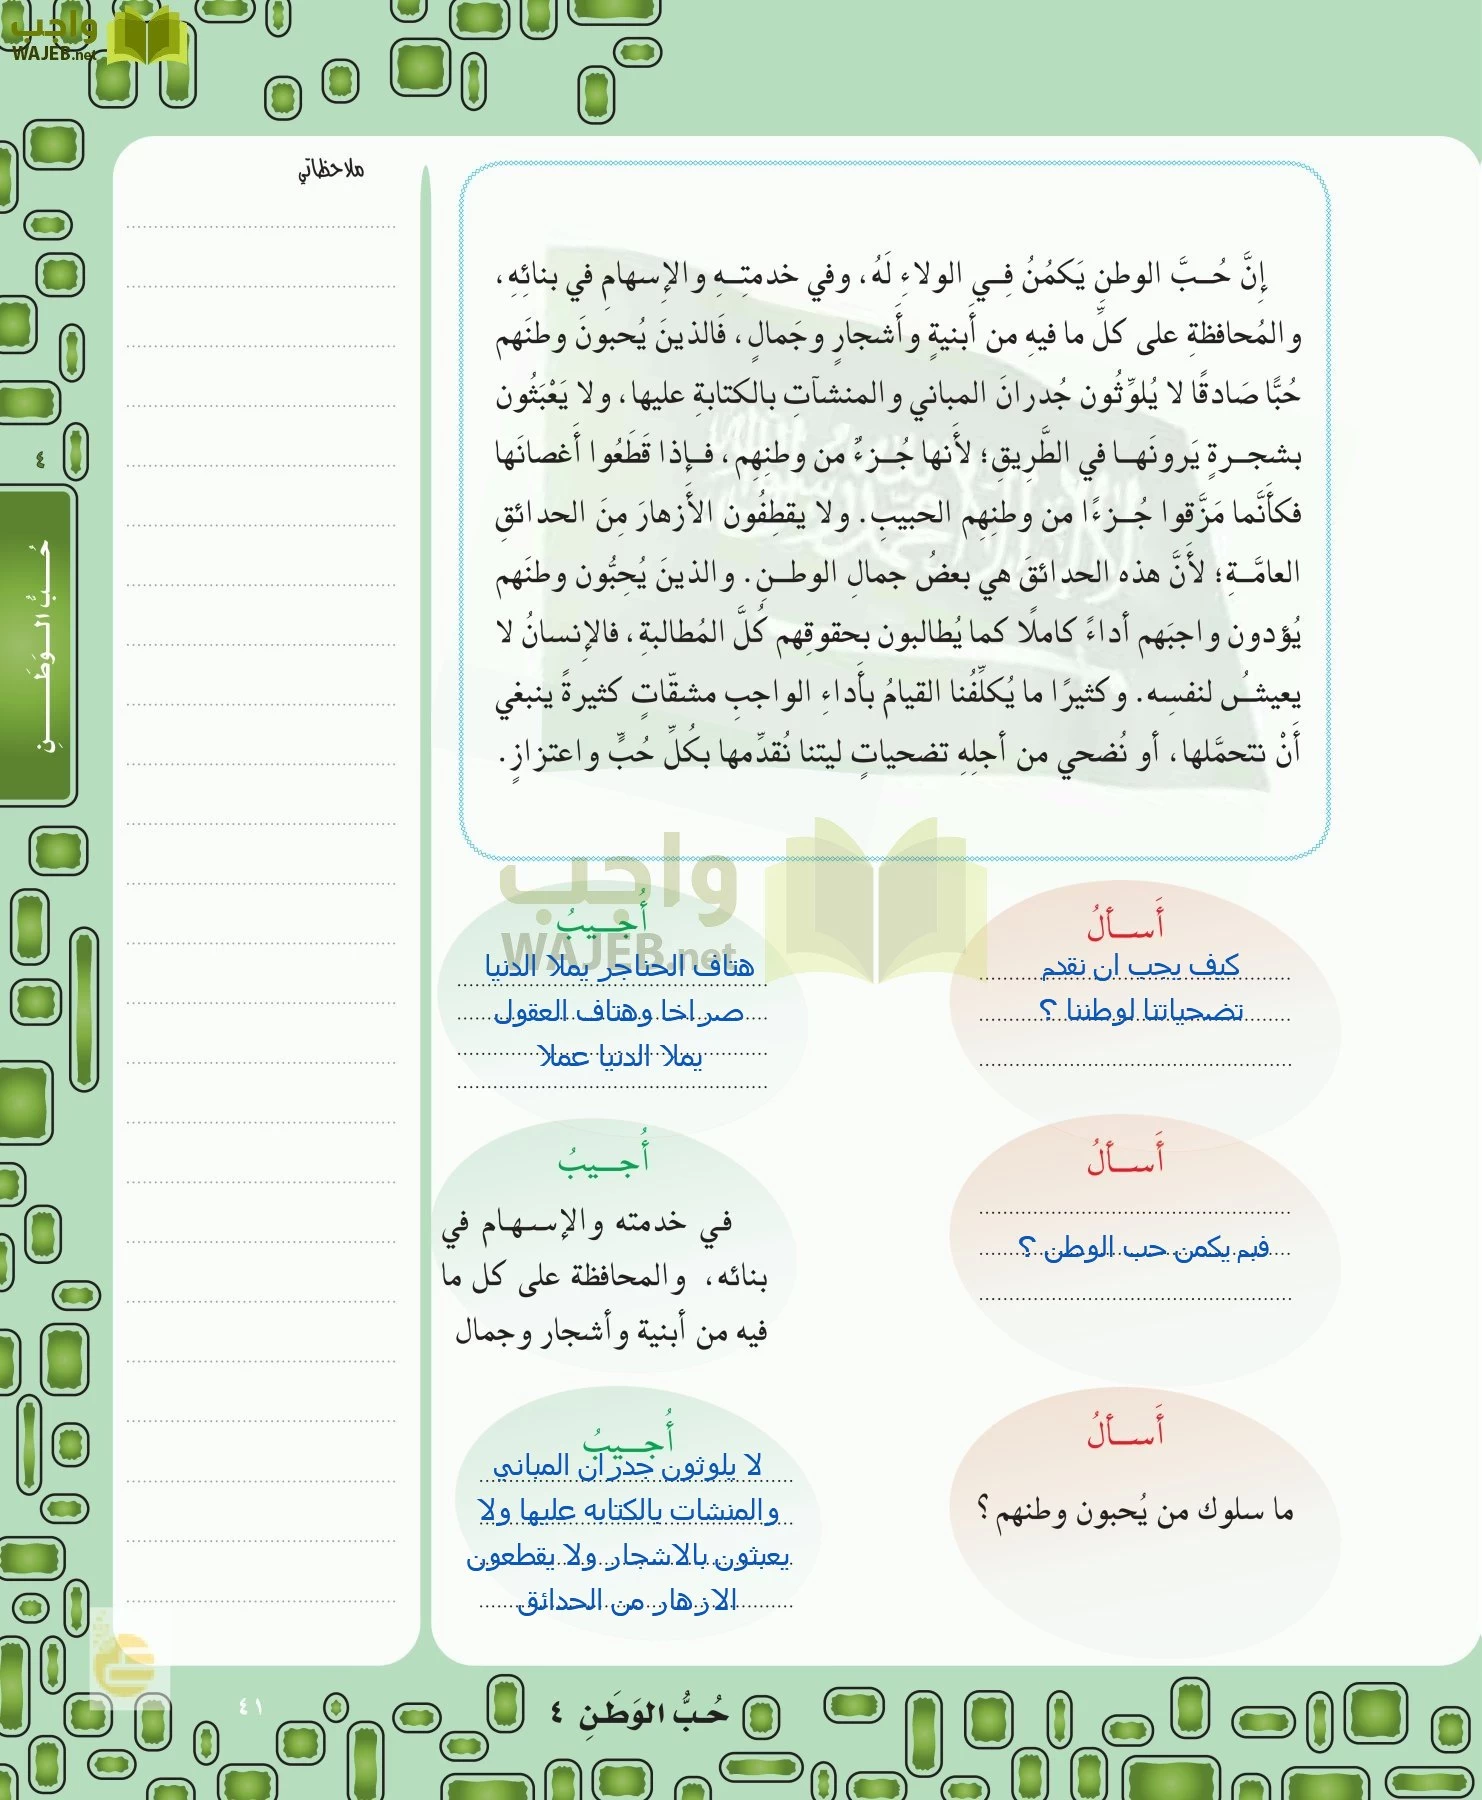 واجب
WAJEB.net
ملاحظاتي
إِنَّ حُبَّ الوطنِ يَكمُنُ فِي الولاءِ لَهُ، وفي خدمتِهِ والإِسهامِ في بنائِهِ،
والمُحافظةِ على كلِّ ما فيهِ من أَبنيةٍ وأَشجارٍ وجَمالٍ، فَالذينَ يُحبونَ وطنَهم
حُبًّا صَادقًا لا يُلوِّثُون جُدرانَ المباني والمنشآتِ بالكتابةِ عليها، ولا يَعْبَثُون
بشجرةٍ يَرونَها في الطَّرِيقِ؛ لأَنها جُزءٌ من وطنِهِم، فإِذا قَطَعُوا أَغصانَها
فكأَنَّما مَزَّقوا جُزءًا من وطنِهِم الحبيبِ. ولا يقطِفُون الأَزهارَ مِنَ الحدائقِ
العامَّةِ؛ لأَنَّ هذه الحدائقَ هي بعضُ جمالِ الوطنِ. والذينَ يُحِبُّون وطنَهم
يُؤدون واجبَهم أداءً كاملًا كما يُطالبون بحقوقِهم كُلَّ المُطالبةِ، فالإِنسانُ لا
يعيشُ لنفسِه. وكثيرًا ما يُكلِّفُنا القيامُ بأَداءِ الواجبِ مشقّاتٍ كثيرةً ينبغي
أَنْ نتحمَّلها، أو نُضحي من أجلِهِ تضحياتٍ ليتنا نُقدِّمها بكُلِّ حُبٍّ واعتزازٍ.
واجب
WAJEB.net
أَسألُ
كيف يجب ان نقدم
تضحياتنا لوطننا ؟
أُجيبُ
هتاف الحناجر يملا الدنيا
صراخا وهتاف العقول
يملا الدنيا عملا
أَسألُ
فبم يكمن حب الوطن ؟
أُجيبُ
في خدمته والإسهام في
بنائه، والمحافظة على كل ما
فيه من أبنية وأشجار وجمال
أَسألُ
ما سلوك من يُحبون وطنهم؟
أُجيبُ
لا يلوثون جدران المباني
والمنشات بالكتابه عليها ولا
يعبثون بالاشجار ولا يقطعون
الازهار من الحدائق
٤
حُبُّ الوَطَنِ
حُبُّ الوَطَنِ ٤
٤١